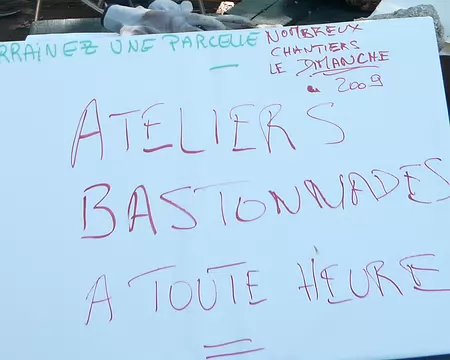 RRAINEZ UNE PARCELLE
NOMBREUX
CHANTIERS
LE DIMANCHE
2009
ATELIERS
BASTONNADES
A TOUTE HEURE